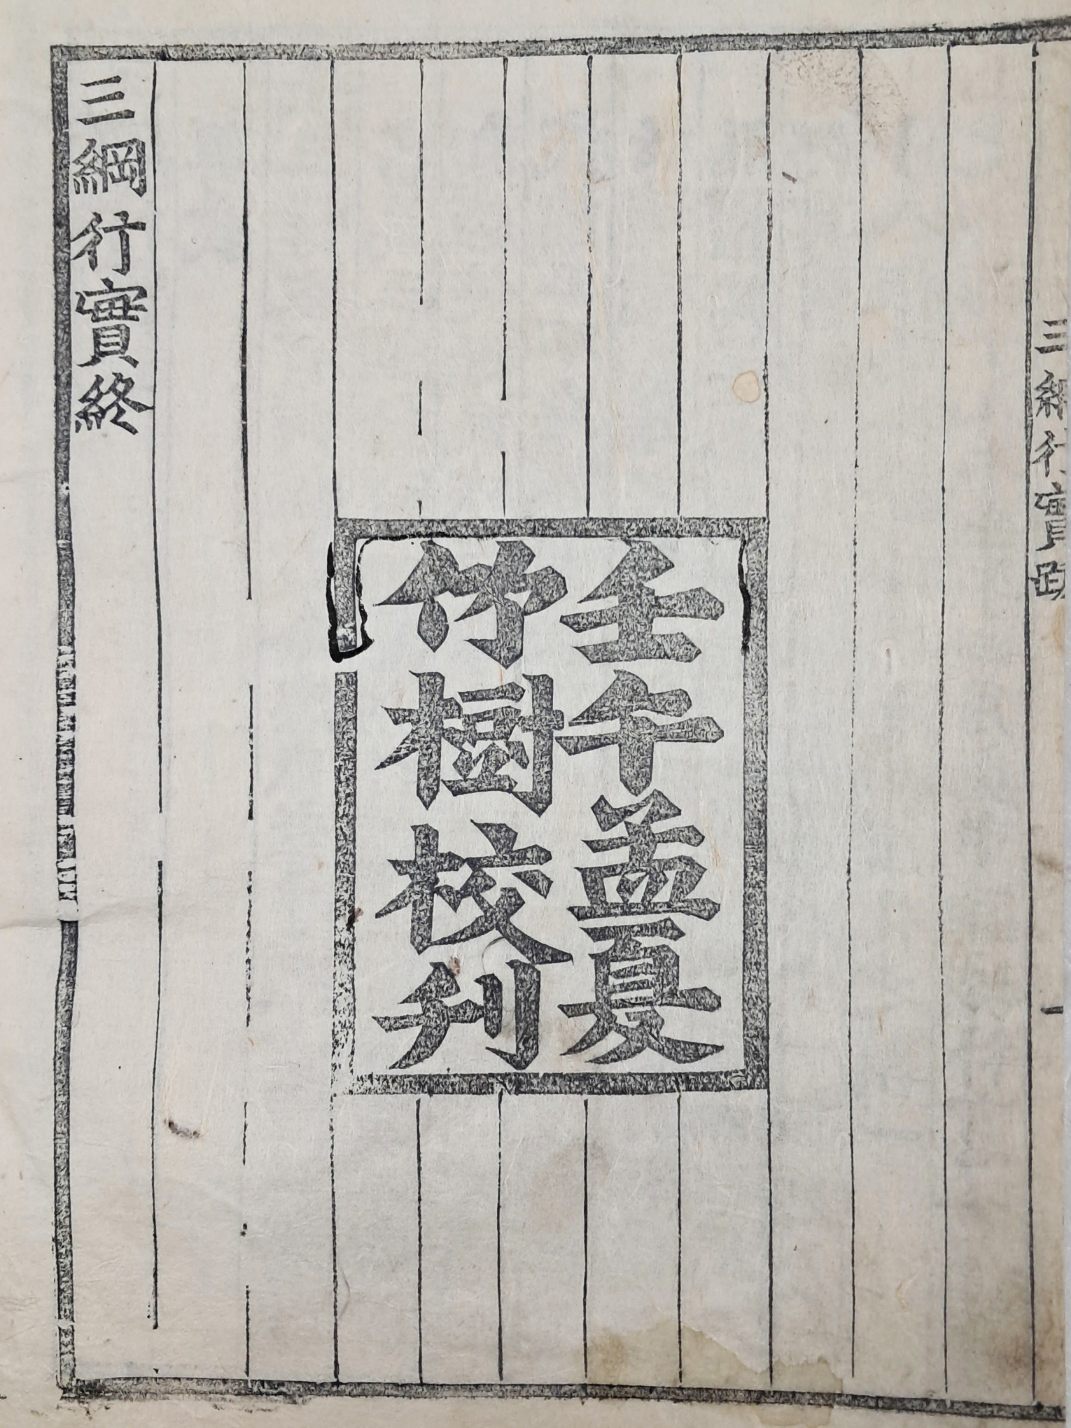 三綱行實跋
壬午孟夏
竹樹校刋
三綱行實終